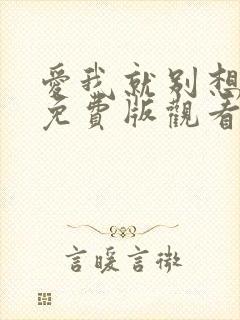 愛我就別想
免費版觀看
言暖言微